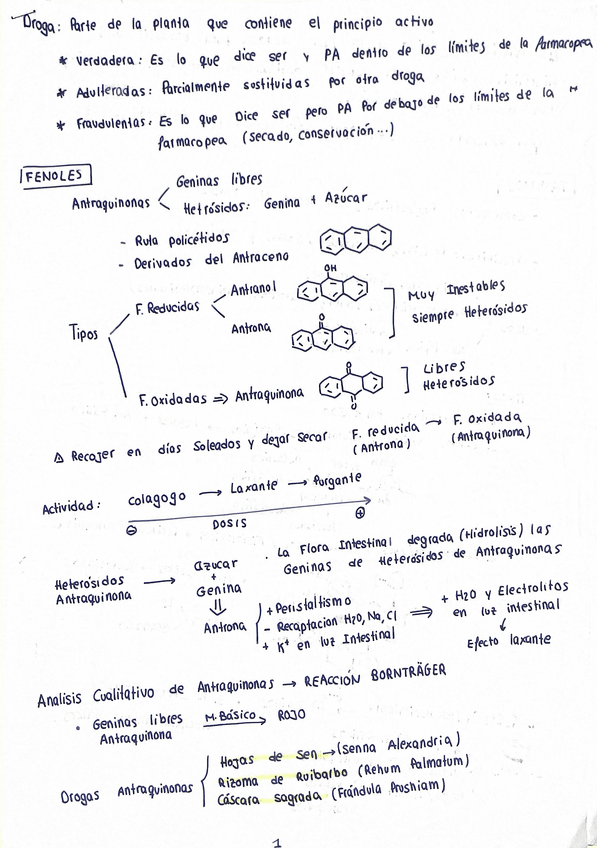 Droga: Parte de la planta que contiene el principio activo
* Verdadera: Es lo que dice ser y PA dentro de los límites de la farmacopea
* Adulteradas: Parcialmente sostituidas por otra droga
* Fraudulentas: Es lo que Dice ser pero PA Por debajo de los límites de la
farmacopea (secado, conservación...)
FENOLES
Antraquinonas
Geninas libres
Hetrósidos: Genina + Azúcar
- Ruta policétidos
- Derivados del Antraceno
Tipos
F. Reducidas
Antranol
OH
Antrona
O
Muy Inestables
siempre Heterósidos
F. Oxidadas ⇒ Antraquinona
O
O
Libres
Heterósidos
△ Recojer en días Soleados y dejar Secar F. reducida → F. oxidada
(Antrona) (Antraquinona)
Actividad: colagogo → Laxante → Purgante
⊖ DOSIS ⊕
Heterósidos
Antraquinona
→ azucar
+
Genina
⇓
Antrona
· La Flora Intestinal degrada (Hidrolisis) las
Geninas de Heterósidos de Antraquinonas
+ Peristaltismo
- Recaptacion H2O, Na, Cl
+ K+ en luz Intestinal
⇒ + H2O y Electrolitos
en luz intestinal
↓
Efecto laxante
Analisis Cualitativo de Antraquinonas → REACCIÓN BORNTRÄGER
• Geninas libres M.Básico → ROJO
Antraquinona
Drogas Antraquinonas
Hojas de Sen → (Senna Alexandria)
Rizoma de Ruibarbo (Rehum Palmatum)
Cáscara sagrada (Frándula Prushiam)
1